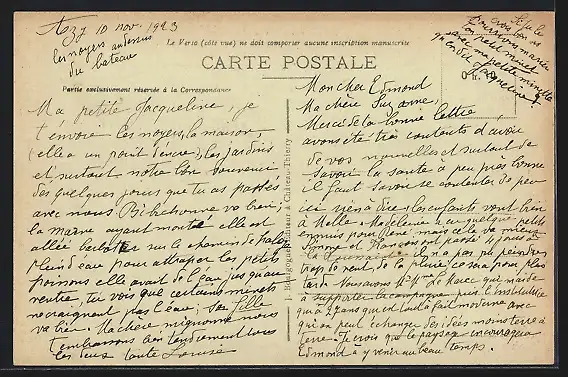 Azy 10 nov. 1923
les noyers au dessus
du bateau
Le Verso (côté vue) ne doit comporter aucune inscription manuscrite
CARTE POSTALE
Partie exclusivement réservée à la Correspondance
Ma petite Jacqueline, je
t'envoie les noyers, la maison,
(elle a un point d'encre), les jardins
et surtout notre bon souvenir
des quelques jours que tu as passés
avec nous. va bien,
la marne ayant monté elle est
allée sur le chemin de halage
plein d'eau pour attraper les petits
poissons elle avait de l'eau jusqu'au
ventre, tu vois que certains minets
ne craignent pas l'eau. Sa fille
va bien. Ma chère mignonne nous
t'embrassons bien tendrement tous
les deux tante Louise
Bourgogne Editeur à Château-Thierry
Mon cher Edmond
Ma chère Suzanne,
Merci de la bonne lettre,
avons été très contents d'avoir
de vos nouvelles et surtout de
savoir la santé à peu près bonne
il faut savoir se contenter de peu
ici rien à dire les enfants vont bien
à Melle Madeleine a eu quelques petits
ennuis pour René mais cela va mieux
Simone et François ont passé 4 jours à
la Il n'a pas pu peindre
trop de vent, de la pluie ce sera pour plus
tard Nous avons Mme Le qui m'aide
à supporter la campagne puis l'institutrice
qui a 27 ans qui est tout à fait moderne avec
qui on peut échanger des idées moins terre à
terre. Je crois que le paysage encouragera
Edmond à y venir au beau temps.